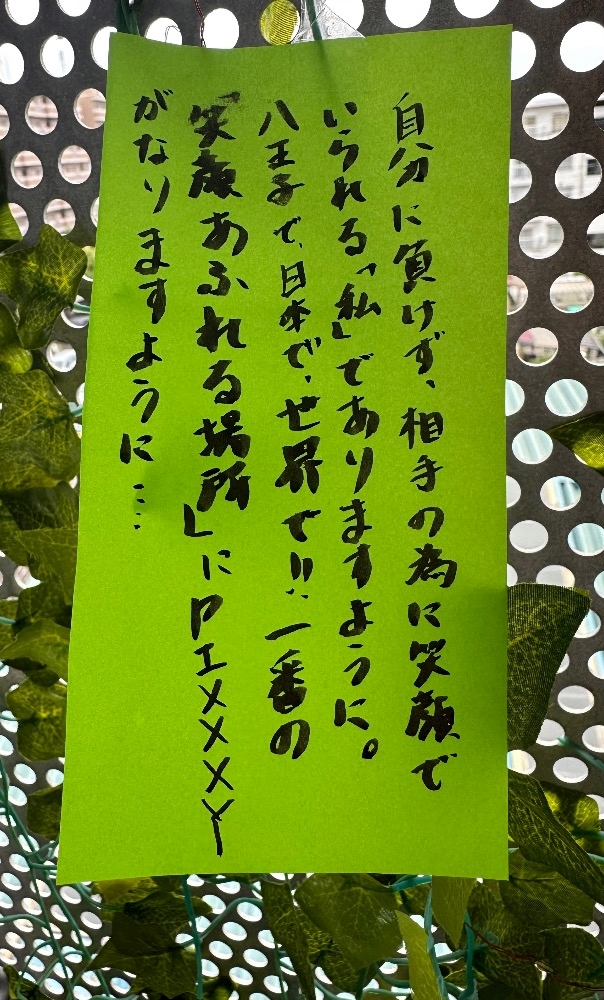 自分に負けず、相手の為に笑顔で
いられる「私」でありますように。
八王子で、日本で、世界で!!一番の
笑顔あふれる場所」にPIXXXXY
がなりますように…